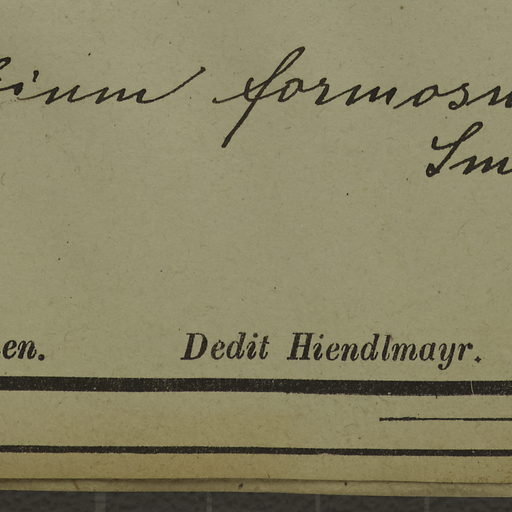 ium formosu
Sm
en. Dedit Hiendlmayr.